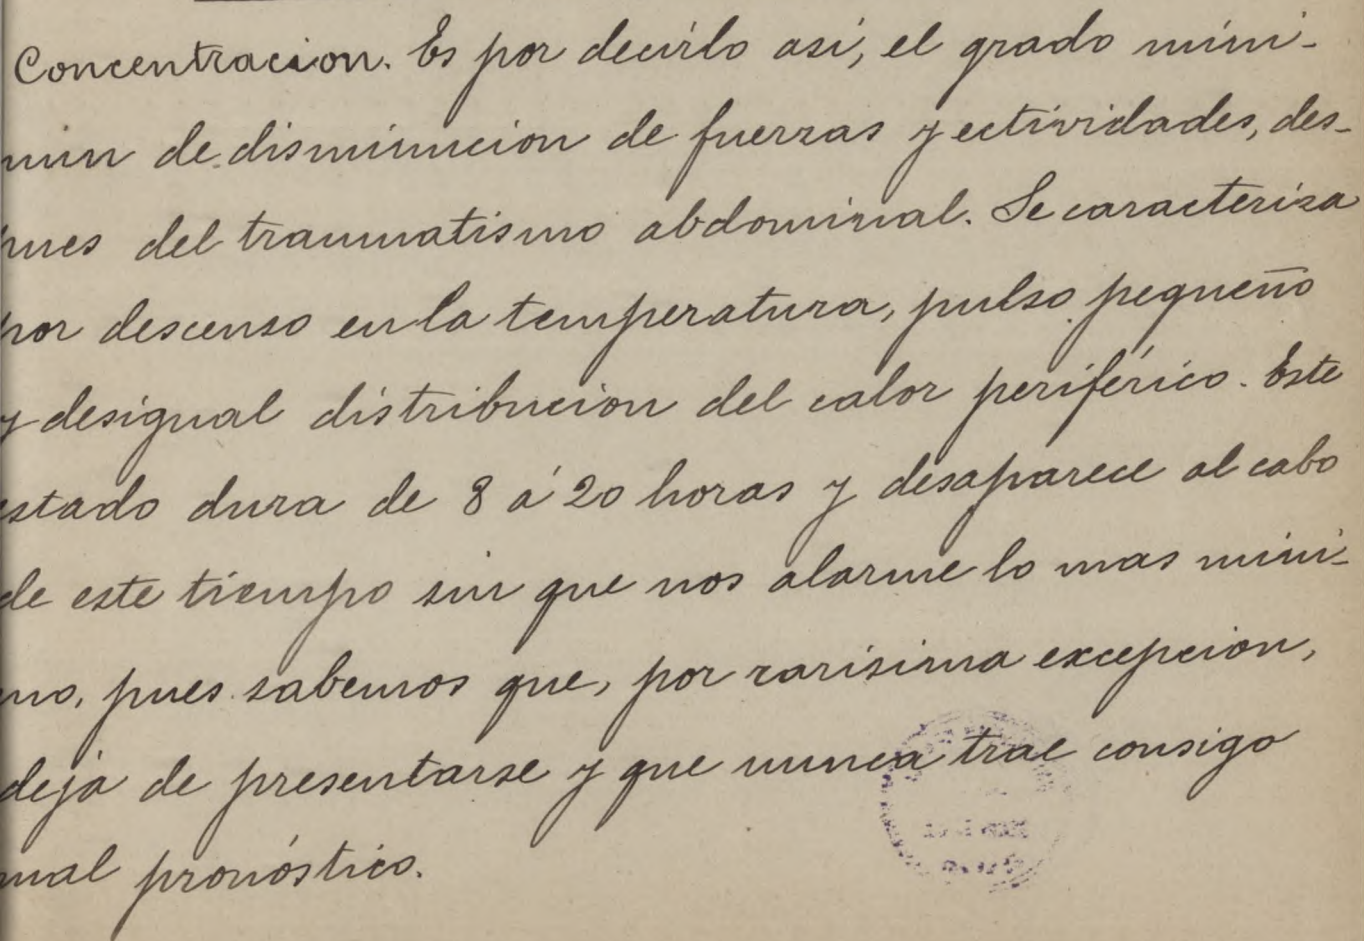 Concentracion. Es por decirlo asi, el grado míni-
mun de disminucion de fuerzas y ectividades, des-
pues del traumatismo abdominal. Se caracteriza
por descenso en la temperatura, pulso pequeño
y desigual distribucion del calor periférico. Este
estado dura de 8 á 20 horas y desaparece al cabo
de este tiempo sin que nos alarme lo mas míni-
mo, pues sabemos que, por rarisima excepcion,
deja de presentarse y que nunca trae consigo
mal pronóstico.